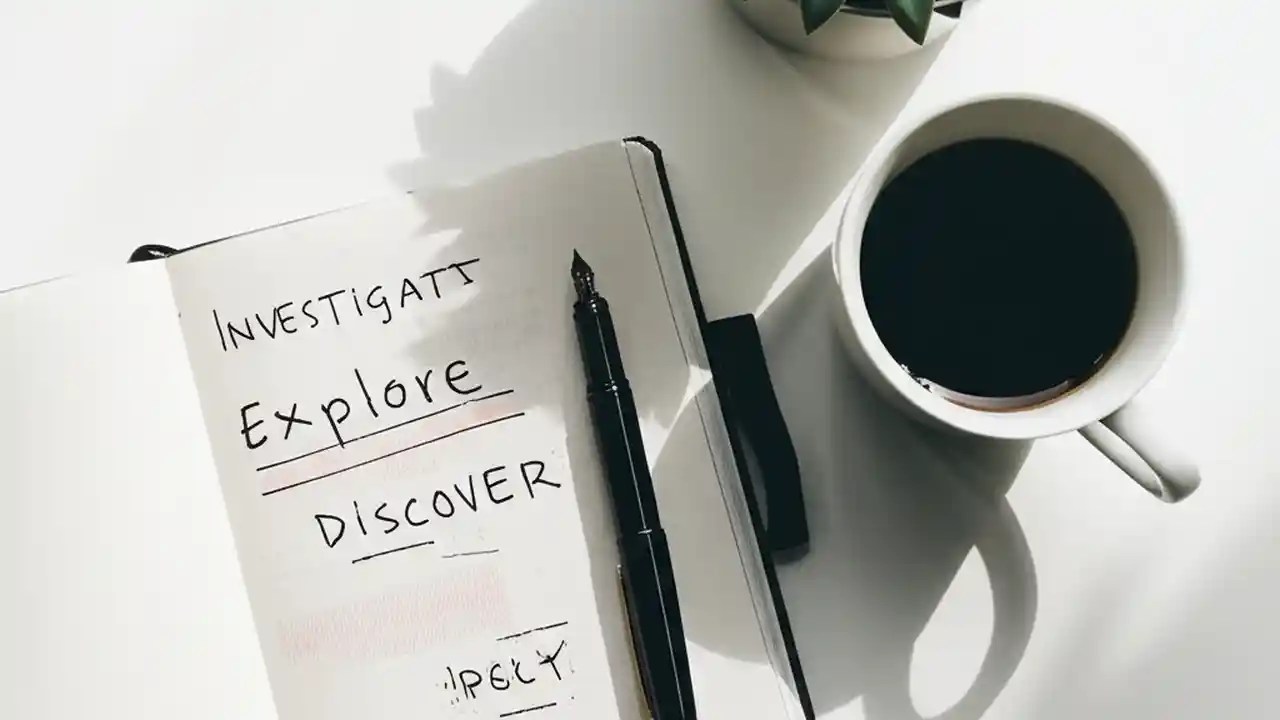 INVESTIGAT
Explore
DISCOVER